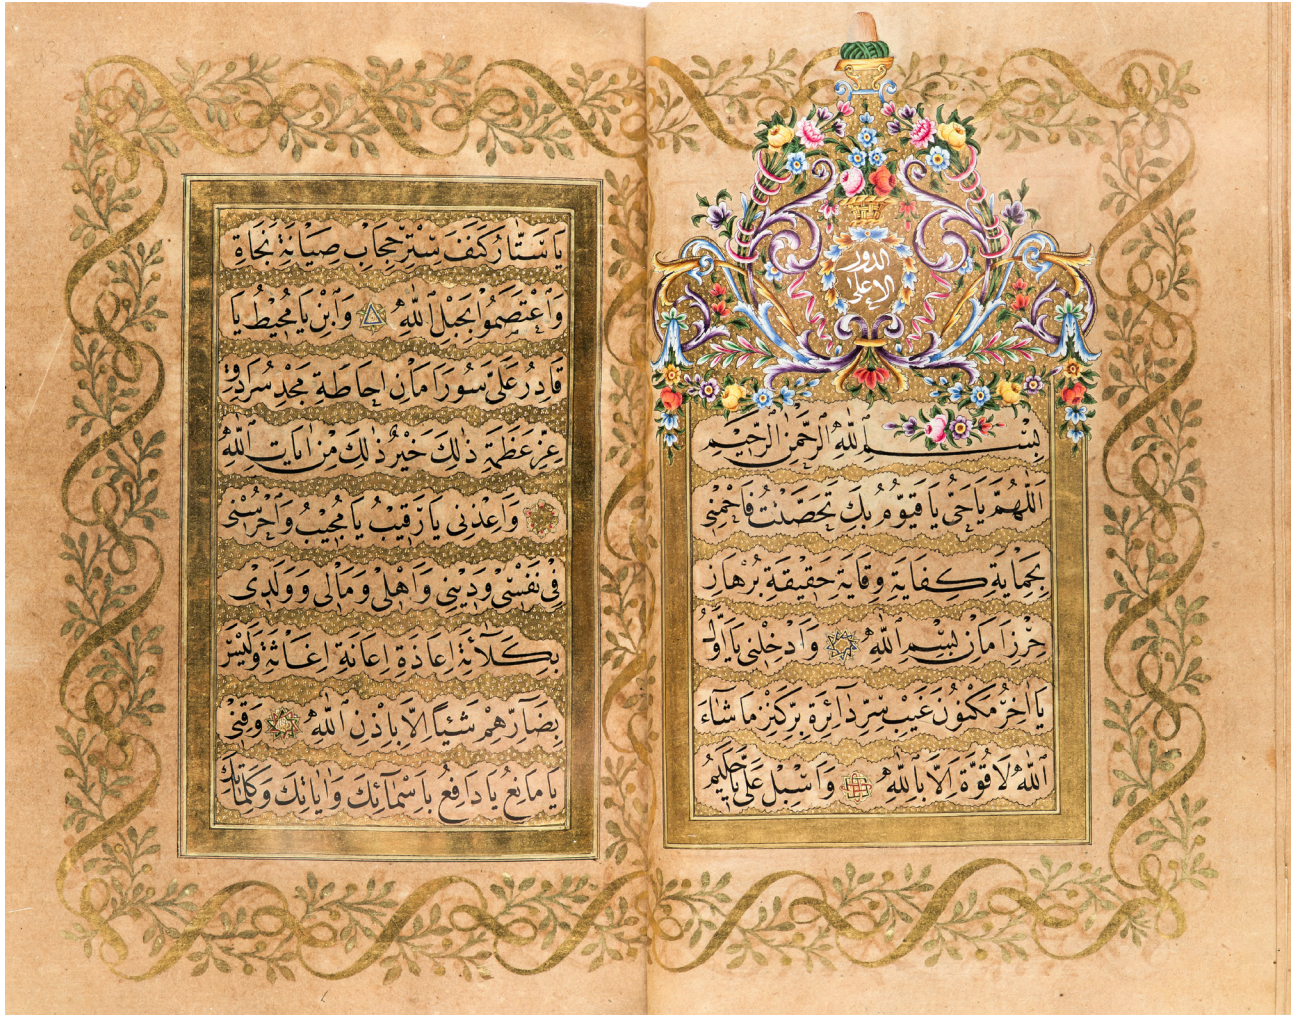 الدور
الاعلى
بِسْمِ اللّٰهِ الرَّحْمٰنِ الرَّحِيمِ
اَللّٰهُمَّ يَا حَىُّ يَا قَيُّومُ بِكَ تَحَصَّنْتُ فَاحْمِنِى
بِحِمَايَةِ كِفَايَةِ وِقَايَةِ حَقِيقَةِ بُرْهَانِ
حِرْزِ اَمَانِ بِسْمِ اللّٰهِ وَاَدْخِلْنِى يَا اَوَّلُ
يَا اٰخِرُ مَكْنُونَ غَيْبِ سِرِّ دَآئِرَةِ بِرِّ كَنْزِ مَا شَآءَ
اللّٰهُ لَا قُوَّةَ اِلَّا بِاللّٰهِ وَاَسْبِلْ عَلَىَّ يَا حَكِيمُ
يَا سَتَّارُ كَنَفَ سِتْرِ حِجَابِ صِيَانَةِ نَجَاةِ
وَاعْتَصِمُوا بِحَبْلِ اللّٰهِ وَابْنِ يَا مُحِيطُ يَا
قَادِرُ عَلَىَّ سُورَ اَمَانِ اِحَاطَةِ مَجْدِ سُرَادِقِ
عِزِّ عَظَمَةِ ذٰلِكَ خَيْرٌ ذٰلِكَ مِنْ اٰيَاتِ اللّٰهِ
وَاَعِذْنِى يَا رَقِيبُ يَا مُجِيبُ وَاحْرُسْنِى
فِى نَفْسِى وَدِينِى وَاَهْلِى وَمَالِى وَوَلَدِى
بِكَلَآئَةِ اِعَاذَةِ اِعَانَةِ اِغَاثَةِ وَلَيْسَ
بِضَآرِّهِمْ شَيْئًا اِلَّا بِاِذْنِ اللّٰهِ وَقِنِى
يَا مَانِعُ يَا دَافِعُ بِاَسْمَآئِكَ وَاٰيَاتِكَ وَكَلِمَاتِكَ